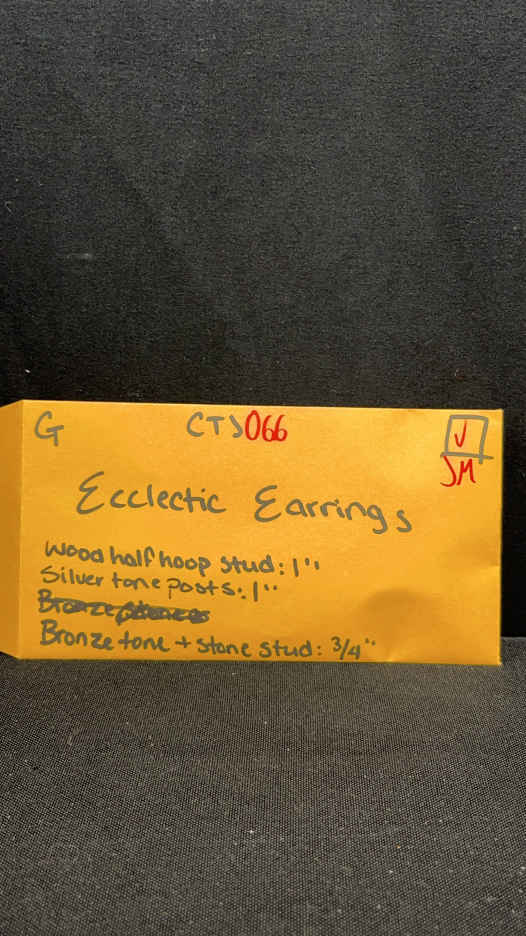 G CTJ066
JM
Ecclectic Earrings
wood half hoop stud: 1"
Silver tone posts: 1"
Bronze tone + stone stud: 3/4"